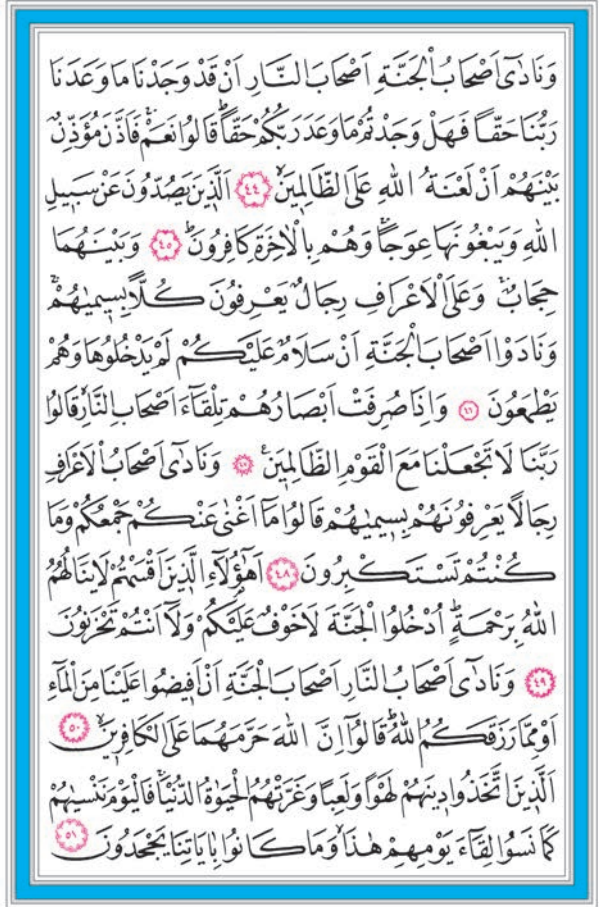 وَنَادٰٓى اَصْحَابُ الْجَنَّةِ اَصْحَابَ النَّارِ اَنْ قَدْ وَجَدْنَا مَا وَعَدَنَا
رَبُّنَا حَقًّا فَهَلْ وَجَدْتُمْ مَا وَعَدَ رَبُّكُمْ حَقًّاۜ قَالُوا نَعَمْۚ فَاَذَّنَ مُؤَذِّنٌ
بَيْنَهُمْ اَنْ لَعْنَةُ اللّٰهِ عَلَى الظَّالِمٖينَۙ ﴿٤٤﴾ اَلَّذٖينَ يَصُدُّونَ عَنْ سَبٖيلِ
اللّٰهِ وَيَبْغُونَهَا عِوَجًاۚ وَهُمْ بِالْاٰخِرَةِ كَافِرُونَۜ ﴿٤٥﴾ وَبَيْنَهُمَا
حِجَابٌۚ وَعَلَى الْاَعْرَافِ رِجَالٌ يَعْرِفُونَ كُلًّا بِسٖيمٰيهُمْۚ
وَنَادَوْا اَصْحَابَ الْجَنَّةِ اَنْ سَلَامٌ عَلَيْكُمْ لَمْ يَدْخُلُوهَا وَهُمْ
يَطْمَعُونَ ﴿٤٦﴾ وَاِذَا صُرِفَتْ اَبْصَارُهُمْ تِلْقَٓاءَ اَصْحَابِ النَّارِۙ قَالُوا
رَبَّنَا لَا تَجْعَلْنَا مَعَ الْقَوْمِ الظَّالِمٖينَࣖ ﴿٤٧﴾ وَنَادٰٓى اَصْحَابُ الْاَعْرَافِ
رِجَالًا يَعْرِفُونَهُمْ بِسٖيمٰيهُمْ قَالُوا مَٓا اَغْنٰى عَنْكُمْ جَمْعُكُمْ وَمَا
كُنْتُمْ تَسْتَكْبِرُونَ ﴿٤٨﴾ اَهٰٓؤُ۬لَٓاءِ الَّذٖينَ اَقْسَمْتُمْ لَا يَنَالُهُمُ
اللّٰهُ بِرَحْمَةٍۜ اُدْخُلُوا الْجَنَّةَ لَا خَوْفٌ عَلَيْكُمْ وَلَٓا اَنْتُمْ تَحْزَنُونَ
﴿٤٩﴾ وَنَادٰٓى اَصْحَابُ النَّارِ اَصْحَابَ الْجَنَّةِ اَنْ اَفٖيضُوا عَلَيْنَا مِنَ الْمَٓاءِ
اَوْ مِمَّا رَزَقَكُمُ اللّٰهُۜ قَالُٓوا اِنَّ اللّٰهَ حَرَّمَهُمَا عَلَى الْكَافِرٖينَۙ ﴿٥٠﴾
اَلَّذٖينَ اتَّخَذُوا دٖينَهُمْ لَهْوًا وَلَعِبًا وَغَرَّتْهُمُ الْحَيٰوةُ الدُّنْيَاۚ فَالْيَوْمَ نَنْسٰيهُمْ
كَمَا نَسُوا لِقَٓاءَ يَوْمِهِمْ هٰذَاۙ وَمَا كَانُوا بِاٰيَاتِنَا يَجْحَدُونَ ﴿٥١﴾